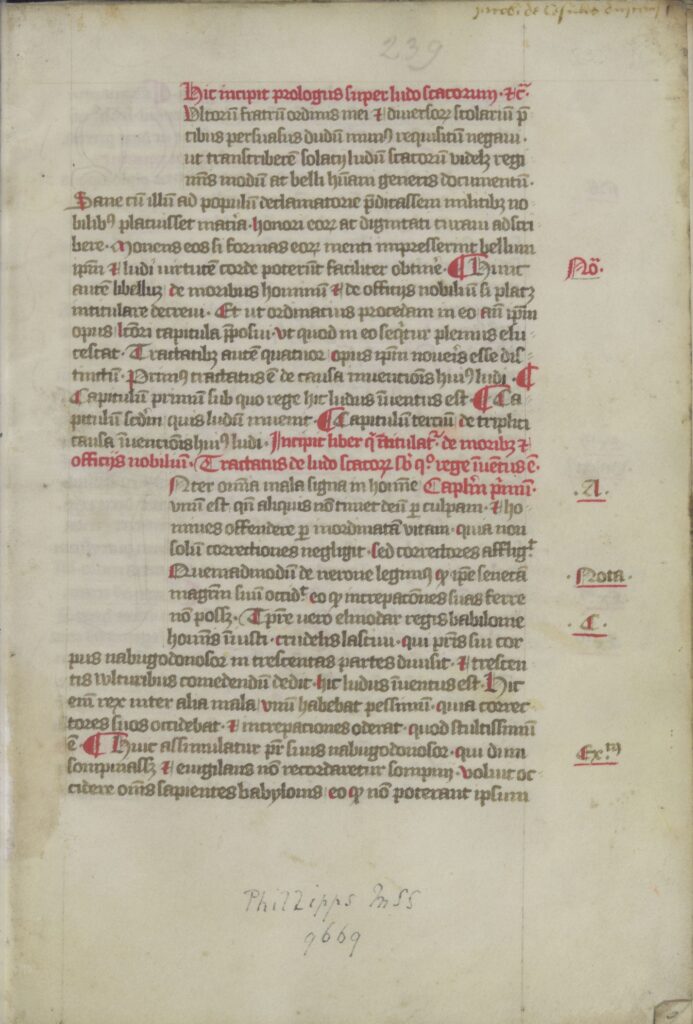 239
Hic incipit prologus super ludo scacorum · ⁊ c̄
Ultorū fratrū ordinis mei ⁊ diversoꝝ scolariū p̄
cibus persuasus dudū minus requisitū negavi ·
ut transcriberē solacij ludū scacorū videlꝫ regi
minis modū ac belli hūani generis documentū ·
Sane cū illū ad populū declamatorie p̄dicassem militibꝫ no
bilibꝰ placuisset mat̄ia · honori eoꝝ ac dignitati curavi adscri
bere · Monens eos si formas eoꝝ menti impresserint bellum
ip̄m ⁊ ludi virtutē corde poterūt faciliter obtine̅ · ¶ Hunc
Nō ·
autē libellū de moribus hominū ⁊ de officijs nobiliū si placꝫ
intitulare decrevi · Et ut ordinatius procedam in eo an̄ ip̄m
opus lc̄ori capitula p̄posui · ut quod in eo seq̄tur plenius elu
cescat · Tractatibꝫ autē quatuor opus ip̄m noveris esse dis
tinctū · Primus tractatus ē de causa invencōis huiꝰ ludi · ¶
Capitulū primū sub quo rege hic ludus īventus est · ¶ Ca
pitulū sc̄dm quis ludū invenit · ¶ Capitulū terciū de triplici
causa īvencōis huiꝰ ludi · Incipit liber q̄ ītitulat̄ · de moribꝫ ⁊
officijs nobiliū · Tractatus de ludo scacoꝝ sb̄ qͦ rege īvētus ē ·
Nter omīa mala signa in homīe Capl̄m p̄mū ·
· A ·
unū est qn̄ aliquis nō timet deū ꝑ culpam · ⁊ ho
mines offendere ꝑ inordinatā vitam · quia non
solū correctiones negligit · sed correctores affligit
Quemadmodū de nerone legimus ꝙ ip̄e senecā
· Nota ·
magr̄m suū occidit eo ꝙ increpacōnes suas ferre
nō possꝫ · Tp̄re vero elmodar regis babilonie
· C ·
homīs īiusti · crudelis lascivi · qui pr̄is sui cor
pus nabugodonosor in trescentas partes divisit · ⁊ trescen
tis vulturibus comedendū dedit · hic ludus īventus est · Hic
enī rex inter alia mala unū habebat pessimū · quia correc
tores suos occidebat · ⁊ increpaciones oderat · quod stultissimū
ē · ¶ Huic assimulatur pr̄ suus nabugodonosor · qui dum
sompniassꝫ ⁊ evigilans nō recordaretur sompnij · voluit oc
cidere om̄s sapientes babylonis · eo ꝙ nō poterant ipsum
Phillipps MSS
9669